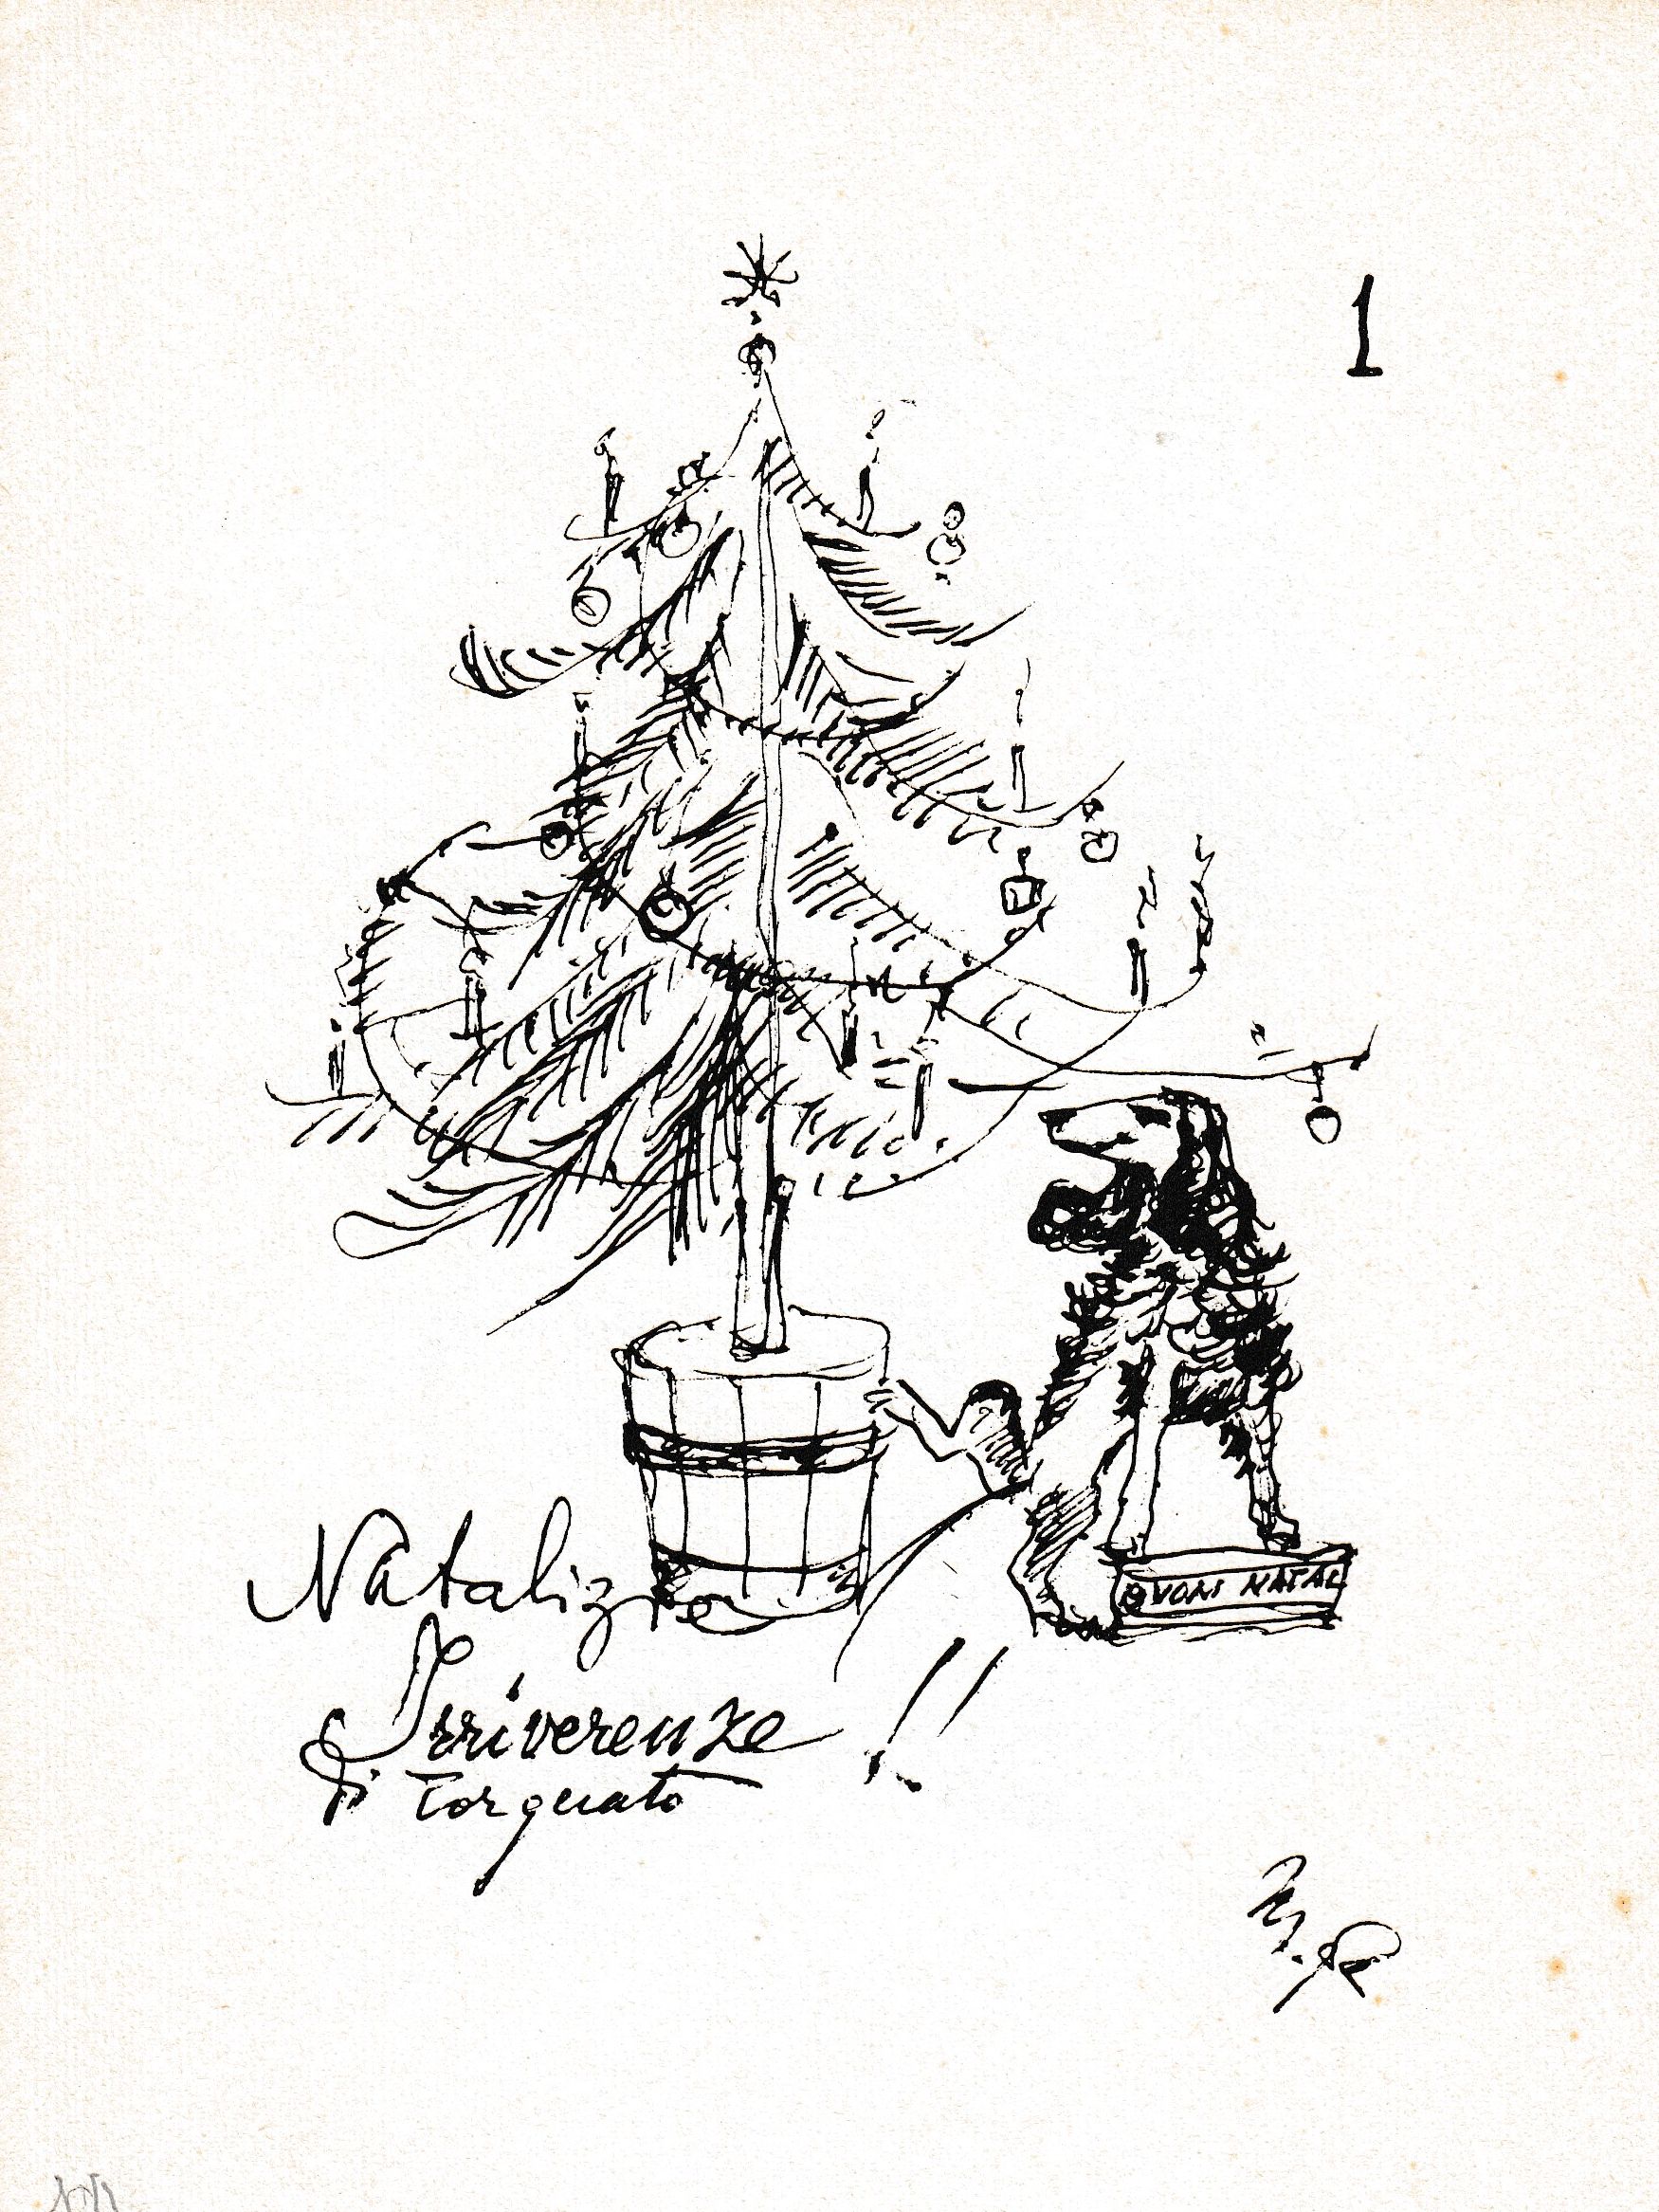 1
BVONI NATAL
Natalizie
Irriverenze !!
di Torquato